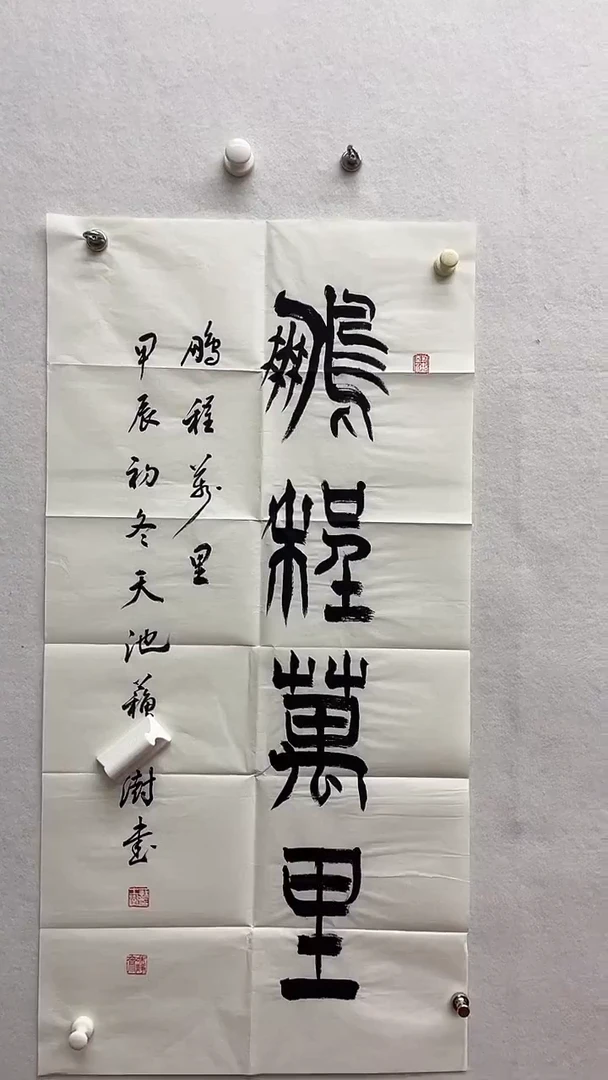 鵬程萬里
鵬程萬里
甲辰初冬天池蘋澍書